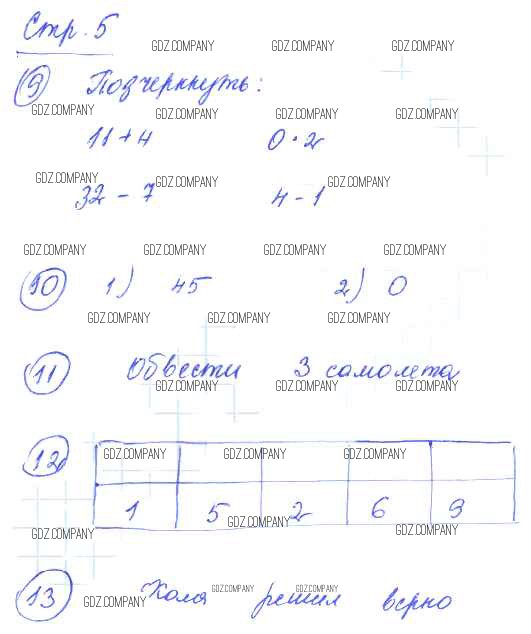 Стр. 5
GDZ.COMPANY GDZ.COMPANY GDZ.COMPANY
9 Подчеркнуть:
GDZ.COMPANY GDZ.COMPANY GDZ.COMPANY GDZ.COMPANY
11+4 0·2
GDZ.COMPANY GDZ.COMPANY GDZ.COMPANY
32-7 4-1
GDZ.COMPANY GDZ.COMPANY GDZ.COMPANY GDZ.COMPANY
10 1) 45 2) 0
GDZ.COMPANY GDZ.COMPANY GDZ.COMPANY
11 Обвести 3 самолета
GDZ.COMPANY GDZ.COMPANY GDZ.COMPANY
12 GDZ.COMPANY GDZ.COMPANY GDZ.COMPANY
1 5 2 6 9
GDZ.COMPANY GDZ.COMPANY GDZ.COMPANY
13 Коля решил верно
GDZ.COMPANY GDZ.COMPANY GDZ.COMPANY